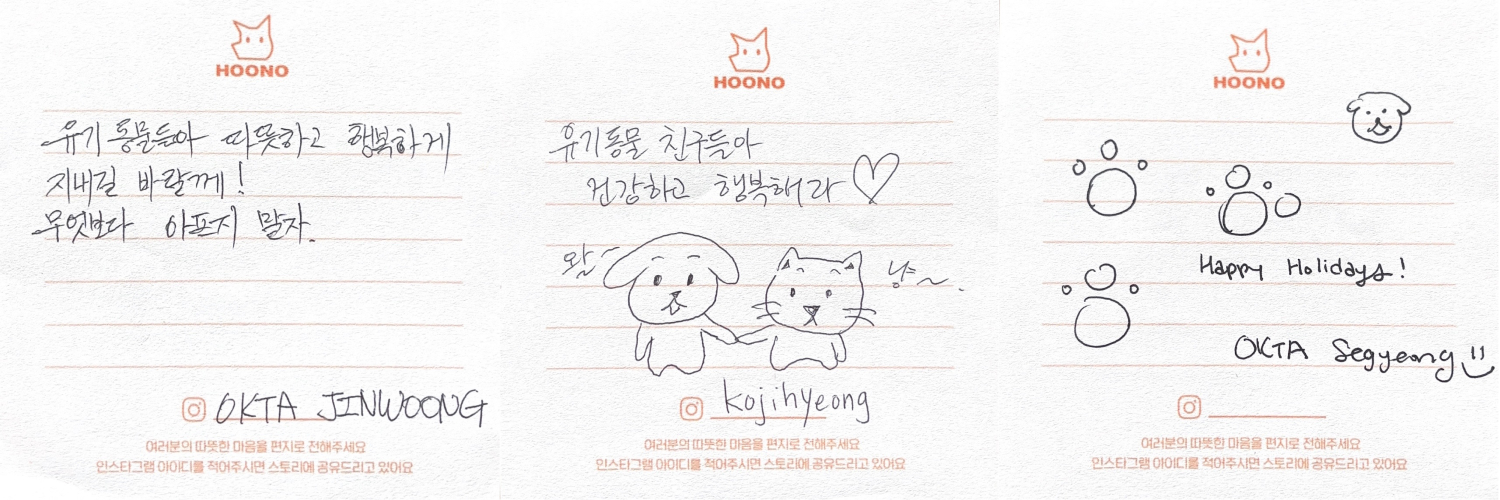 HOONO
유기동물들아 따뜻하고 행복하게
지내길 바랄께!
무엇보다 아프지 말자.
OKTA JINWOONG
여러분의 따뜻한 마음을 편지로 전해주세요
인스타그램 아이디를 적어주시면 스토리에 공유드리고 있어요
HOONO
유기동물 친구들아
건강하고 행복해라
왈~
냥~.
kojihyeong
여러분의 따뜻한 마음을 편지로 전해주세요
인스타그램 아이디를 적어주시면 스토리에 공유드리고 있어요
HOONO
Happy Holidays!
OKTA Segyeong
여러분의 따뜻한 마음을 편지로 전해주세요
인스타그램 아이디를 적어주시면 스토리에 공유드리고 있어요